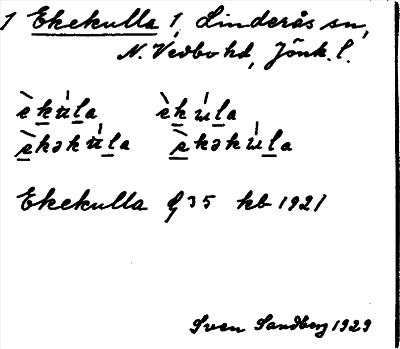 1 Ekekulla 1, Linderås sn,
N. Vedbo hd, Jönk. l.
èkúla èkúla
èkəkúla èkəkúla
Ekekulla G 35 kb 1921
Sven Sandberg 1929